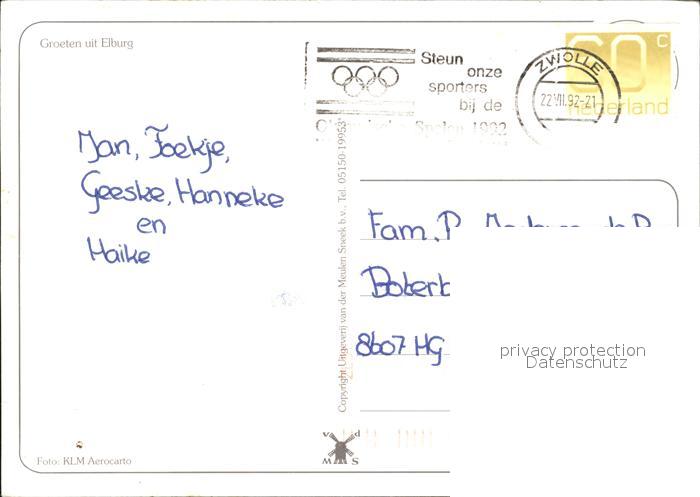 Groeten uit Elburg
Steun
onze
sporters
bij de
Olympische Spelen 1992
ZWOLLE
22.VII.92-21
60 c
nederland
Jan, Foekje,
Geeske, Hanneke
en
Maike
Copyright Uitgeverij van der Meulen Sneek b.v., Tel. 05150-19953*
Fam. P.
8607 HG
privacy protection
Datenschutz
Foto: KLM Aerocarto
v d
M S